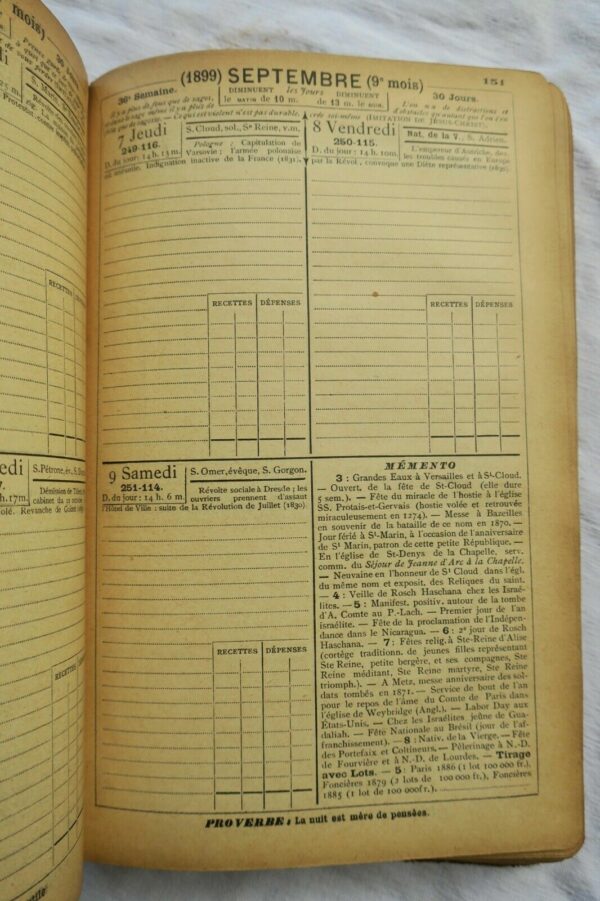 (1899) SEPTEMBRE (9e mois)
151
36e Semaine.
DIMINUENT
les Jours
DIMINUENT
30 Jours.
le MATIN de 10 m.
de 13 m. le SOIR.
Il y a plus de fous que de sages,
et dans le sage même il y a plus de
folie que de sagesse. — Ce qui est violent n'est pas durable.
(IMITATION DE JÉSUS-CHRIST).
7 Jeudi
249-116.
D. du jour : 14 h. 13 m.
S. Cloud, sol., Ste Reine, v.m.
Pologne : Capitulation de
Varsovie ; l'armée polonaise
est annulée. Indignation inactive de la France (1831).
8 Vendredi
250-115.
D. du jour : 14 h. 10m.
Nat. de la V. S. Adrien.
L'empereur d'Autriche, dev.
les troubles causés en Europe
par la Révol., convoque une Diète représentative
RECETTES DÉPENSES
RECETTES DÉPENSES
9 Samedi
251-114.
D. du jour : 14 h. 6 m.
S. Omer, évêque, S. Gorgon.
Révolte sociale à Dresde ; les
ouvriers prennent d'assaut
l'Hôtel de Ville : suite de la Révolution de Juillet (1830).
RECETTES DÉPENSES
MÉMENTO
3 : Grandes Eaux à Versailles et à St-Cloud.
— Ouvert. de la fête de St-Cloud (elle dure
5 sem.). — Fête du miracle de l'hostie à l'église
SS. Protais-et-Gervais (hostie volée et retrouvée
miraculeusement en 1274). — Messe à Bazeilles
en souvenir de la bataille de ce nom en 1870. —
Jour férié à St-Marin, à l'occasion de l'anniversaire
de St Marin, patron de cette petite République. —
En l'église de St-Denys de la Chapelle, serv.
comm. du Séjour de Jeanne d'Arc à la Chapelle.
— Neuvaine en l'honneur de St Cloud dans l'égl.
du même nom et exposit. des Reliques du saint.
— 4 : Veille de Rosch Haschana chez les Israé-
lites. — 5 : Manifest. positiv. autour de la tombe
d'A. Comte au P.-Lach. — Premier jour de l'an
israélite. — Fête de la proclamation de l'Indépen-
dance dans le Nicaragua. — 6 : 2e jour de Rosch
Haschana. — 7 : Fêtes relig. à Ste-Reine d'Alise
(cortège traditionn. de jeunes filles représentant
Ste Reine, petite bergère, et ses compagnes, Ste
Reine méditant, Ste Reine martyre, Ste Reine
triomph.). — A Metz, messe anniversaire des sol-
dats tombés en 1871. — Service de bout de l'an
pour le repos de l'âme du Comte de Paris dans
l'église de Weybridge (Angl.). — Labor Day aux
États-Unis. — Chez les Israélites jeûne de Gua-
daliah. — Fête Nationale au Brésil (jour de l'af-
franchissement). — 8 : Nativ. de la Vierge. — Fête
des Portefaix et Coltineurs. — Pèlerinage à N.-D.
de Fourvière et à N.-D. de Lourdes. — Tirage
avec Lots. — 5 : Paris 1886 (1 lot 100 000 fr.),
Foncières 1879 (2 lots de 100 000 fr.), Foncières
1885 (1 lot de 100 000fr.).
PROVERBE : La nuit est mère de pensées.
mois)
edi
S. Pétrone, év., S.
17m.
Démission de
cabinet du 11
olé. Revanche de